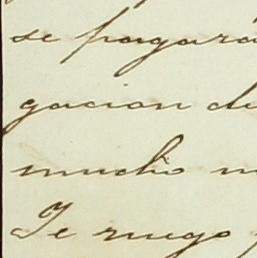 se pagara
gacion de
mucho
Te ruego